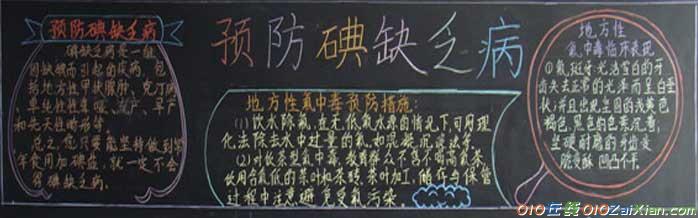 预防碘缺乏病
碘缺乏病是一组
因缺碘而引起的疾病，包
括地方性甲状腺肿、克汀病、
单纯性聋哑、流产、早产
和先天性畸形等。
总之，您只要能坚持做到常
年食用加碘盐，就一定不会
得碘缺乏病。
预防碘缺乏病
地方性氟中毒预防措施：
(1)饮水除氟，在无低氟水源的情况下，可用理
化法除去水中过量的氟，如混凝沉淀法等。
(2)对饮茶型氟中毒，教育群众不喝不喝高氟茶，
饮用含氟低的茶叶和茶砖，茶叶加工、储存与保管
过程中注意避免受氟污染。
地方性
氟中毒临床表现
①氟斑牙：光洁雪白的牙
齿失去正常的光泽而呈白垩
状，并且出现主固的浅黄色
褐色、黑色的色素沉着，
坚硬耐磨的牙齿变
脆变酥凹凸不平。
010在线 010ZaiXian.com